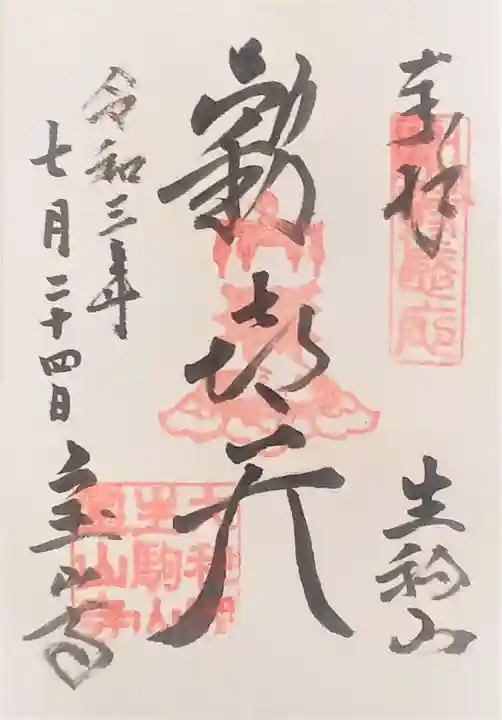 奉拝
生駒山
歓喜天
令和三年
七月二十四日
宝山寺
大和國
生駒山
寶山寺